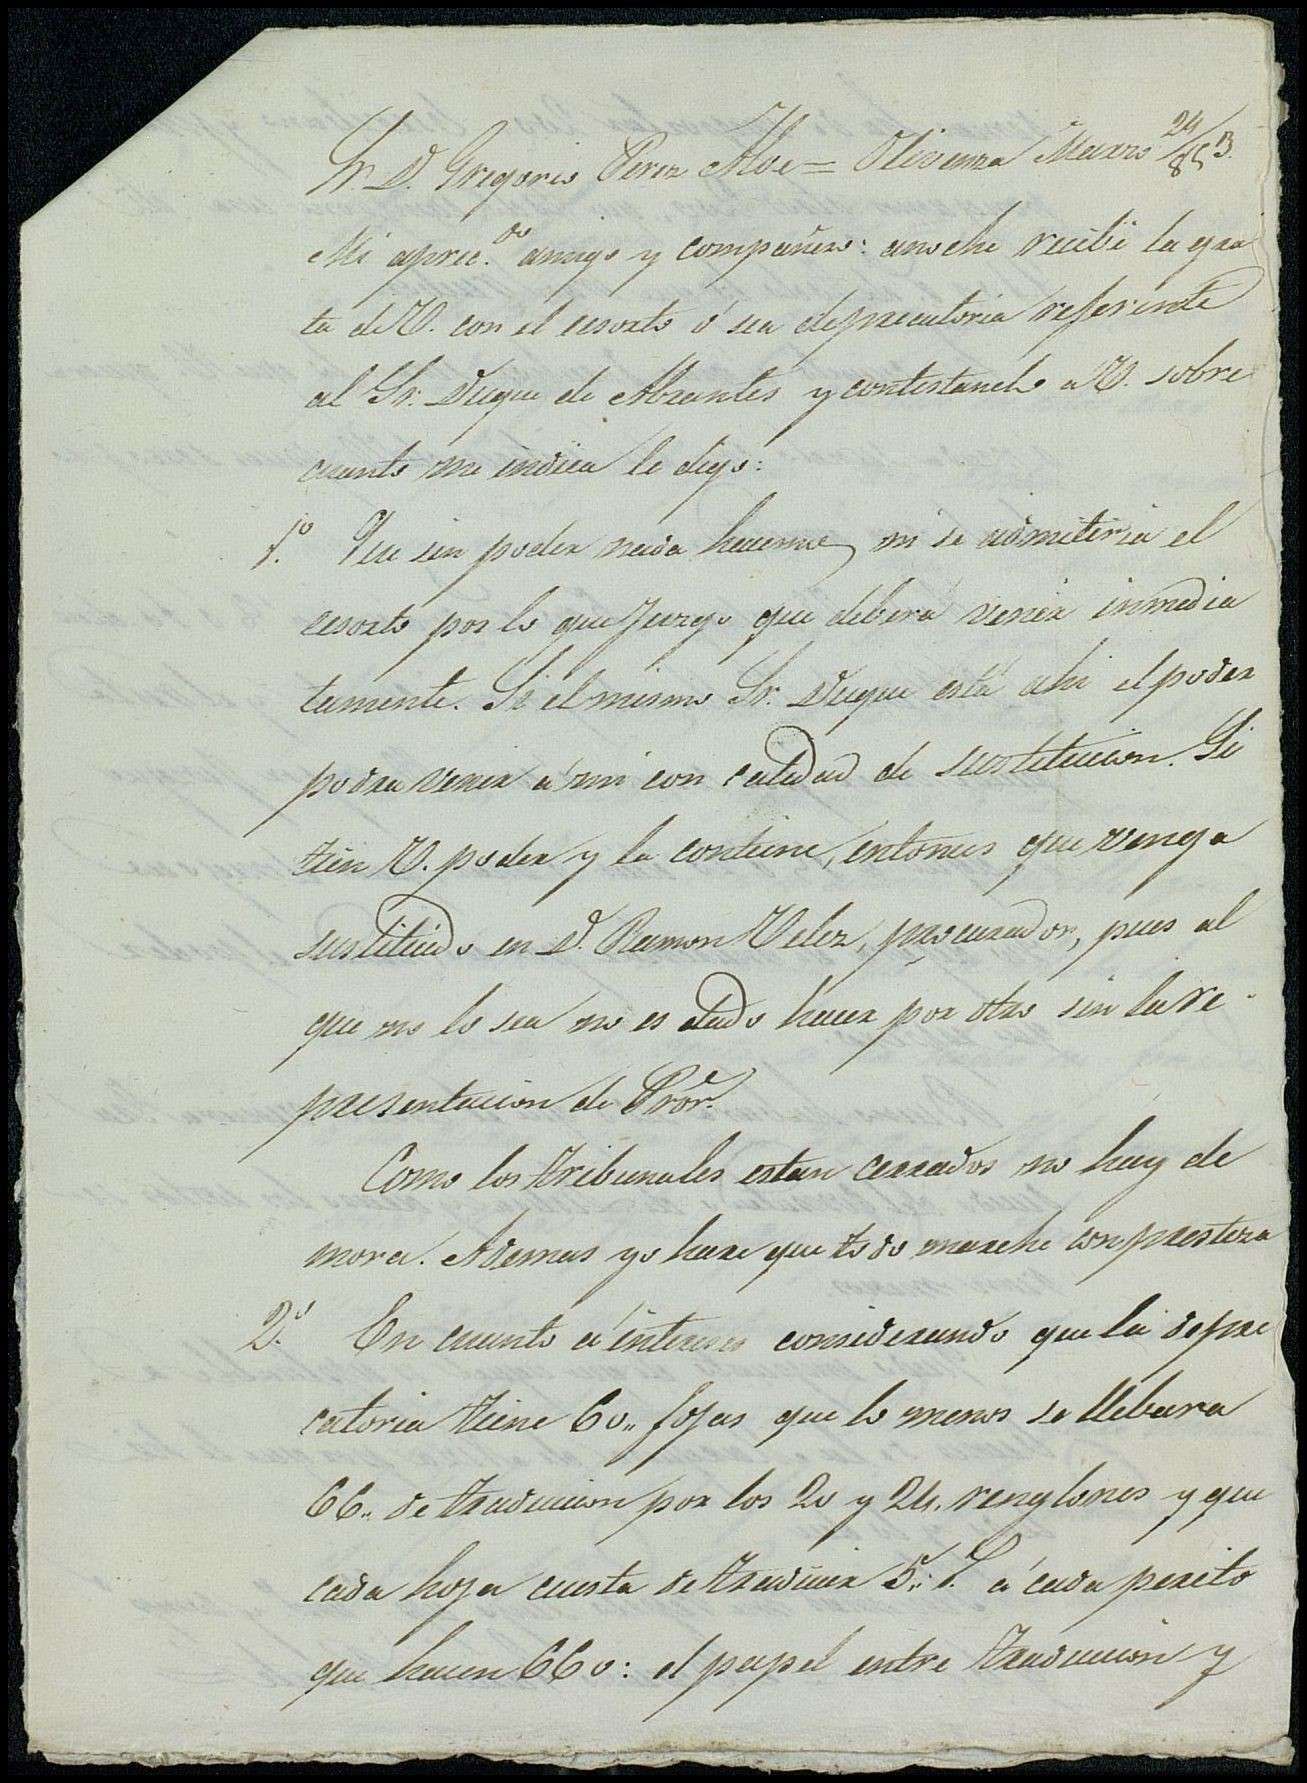 Sr. D. Gregorio Perez Aloe = Olivenza Marzo 24/853.
Mi aprec.do amigo y compañero: anoche recibí la gra
ta de V. con el ecsorto ó sea deprecatoria referente
al Sr. Duque de Abrantes y contestando a V. sobre
cuanto me indica le digo:
1.º Que sin poder nada hacemos, ni se admitiria el
ecsorto por lo que juzgo que deberá venir inmedia
tamente. Si el mismo Sr. Duque está ahi el poder
podra venir á mi con calidad de sustitucion. Si
tiene V. poder y la contiene, entonces que venga
sustituido en D. Ramon Velez, procurador, pues al
que no lo sea no es dado hacer por otro sin la re-
presentacion de Pror.
Como los tribunales estan cerrados no hay de
mora. Ademas yo hare que todo marche con presteza
2.º En cuanto á intereses considerando que la depre
catoria tiene 60,, fojas que lo menos se llebara
66,, de traduccion por los 20 y 24. renglones y que
cada hoja cuesta de traducir 5,, á cada perito
que hacen 660: el papel entre traduccion y